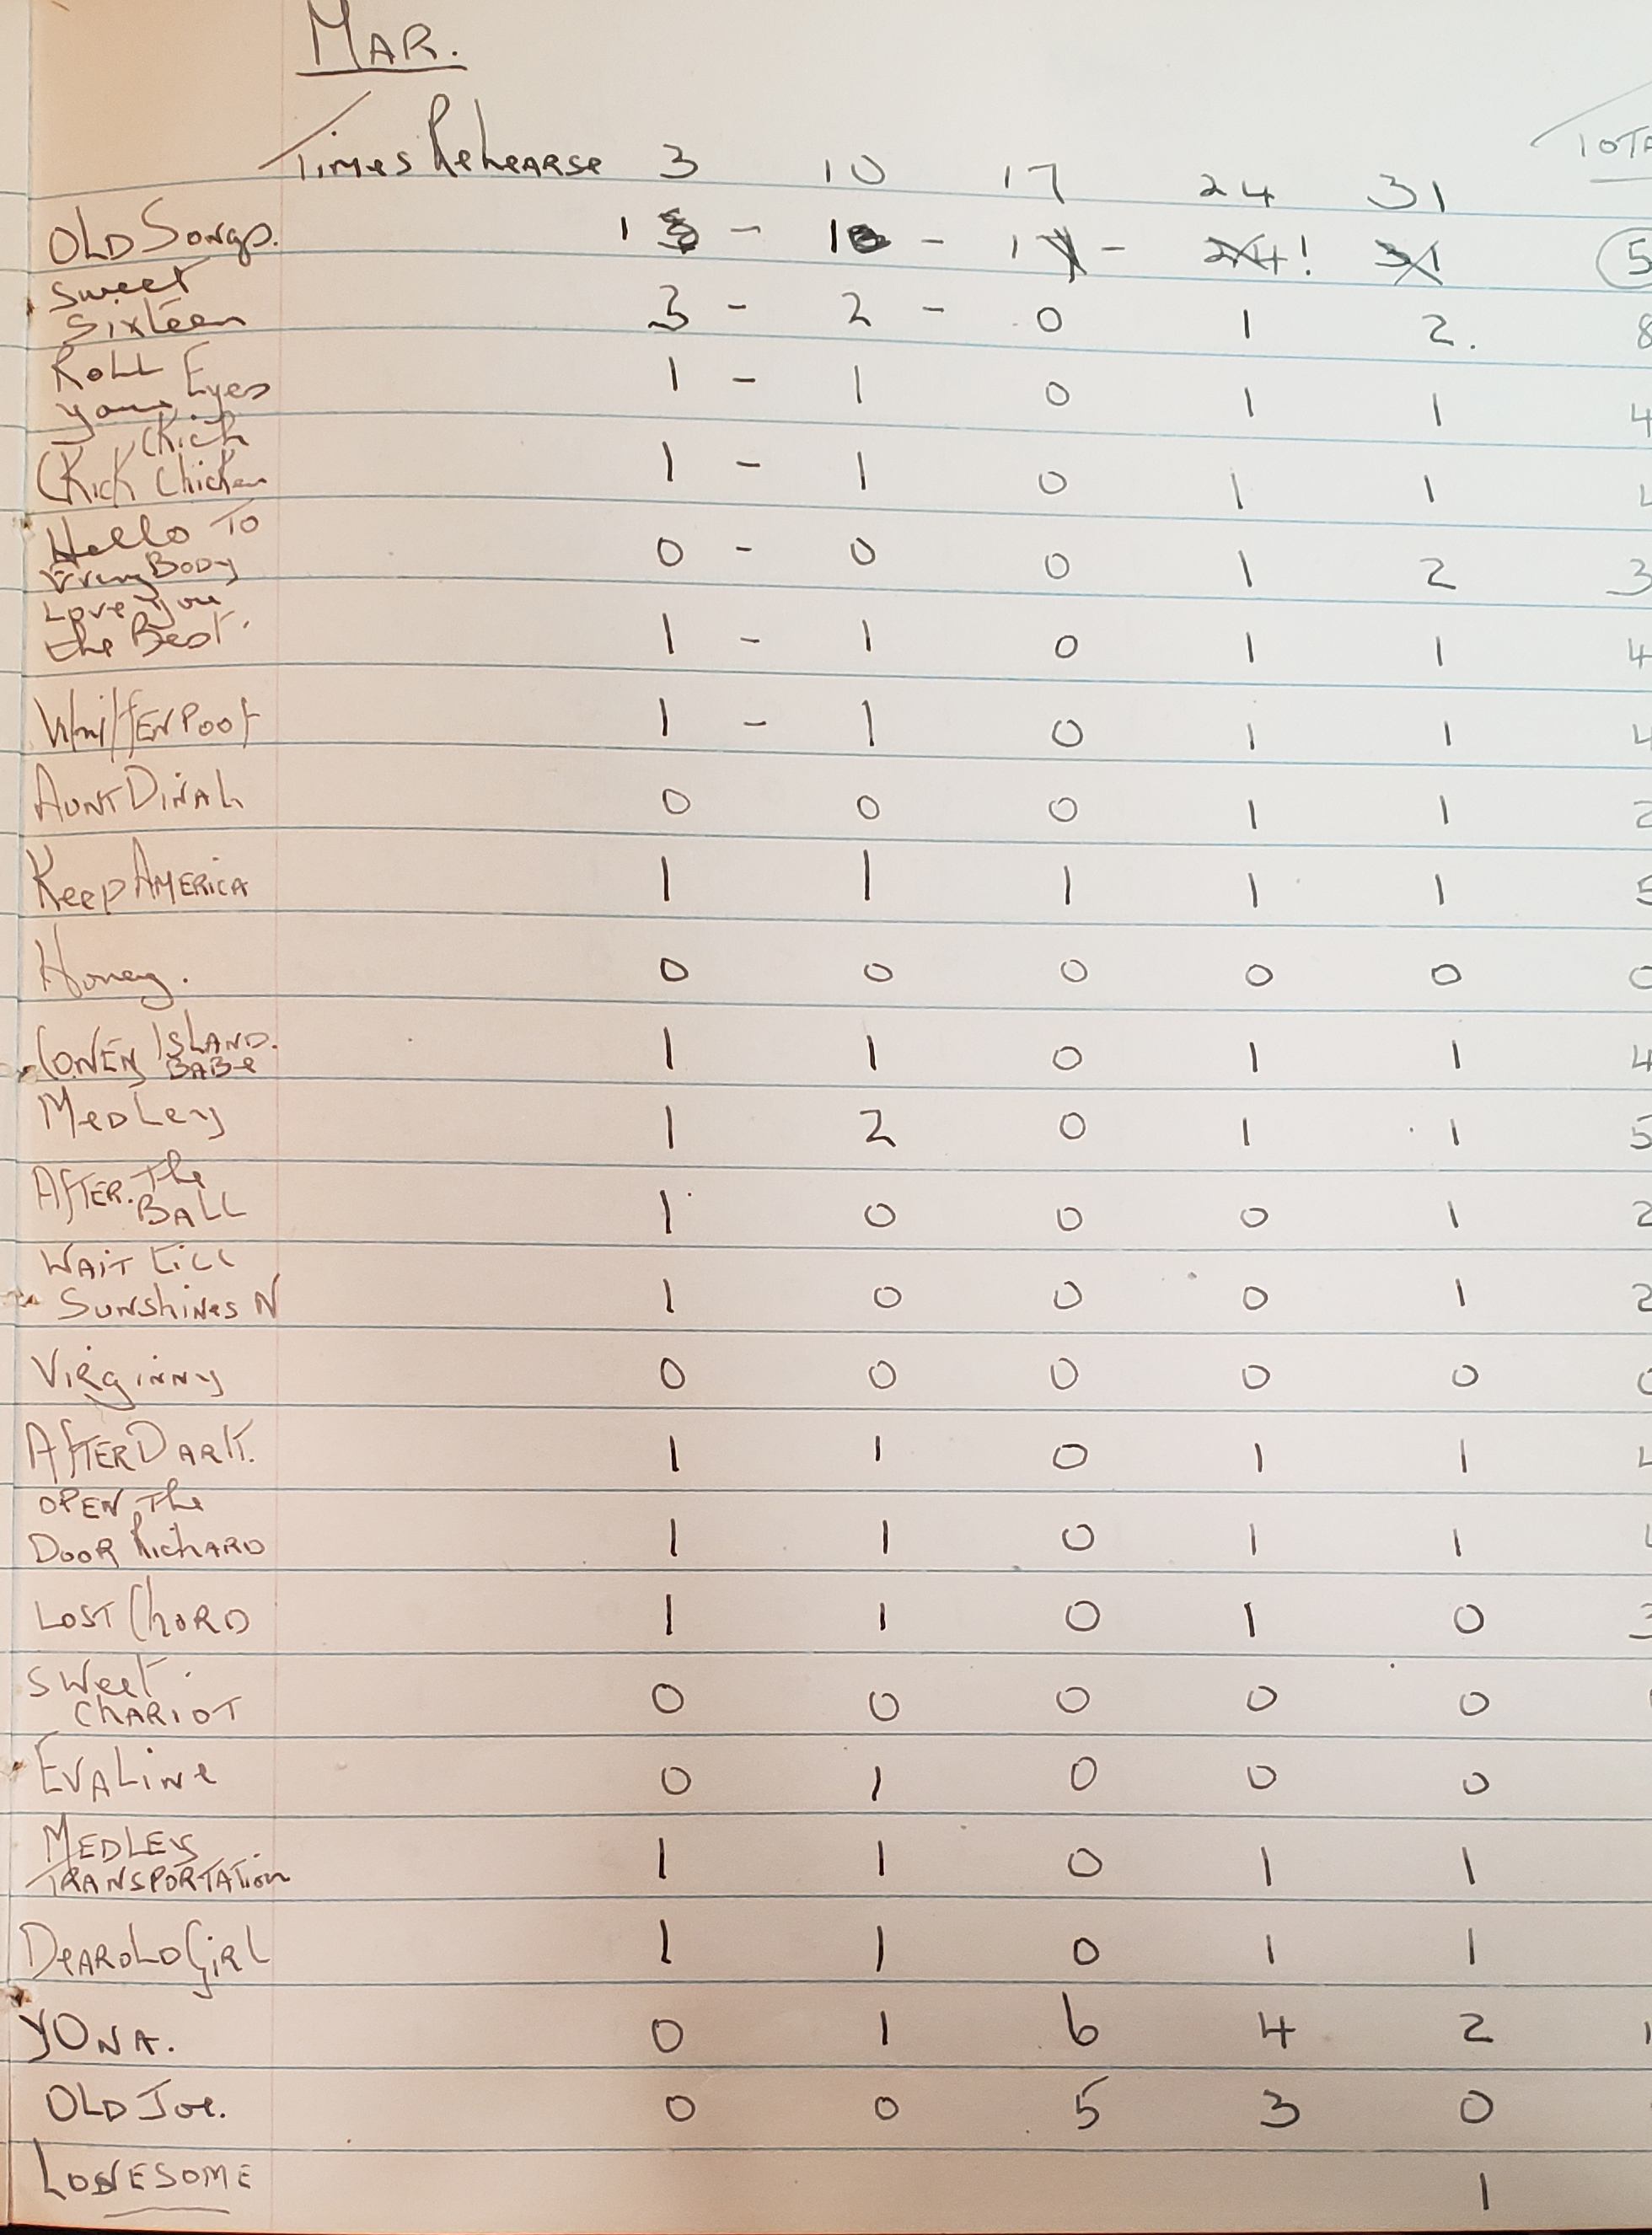 MAR.
Times Rehearse 3 10 17 24 31
OLD Songs. 1 - 1 - 1 - 24! 31 5
Sweet
Sixteen 3 - 2 - 0 1 2. 8
Roll
your Eyes 1 - 1 0 1 1 4
Chick
Chick Chicken 1 - 1 0 1 1
Hello To
Every Body 0 - 0 0 1 2 3
Love you
the Best. 1 - 1 0 1 1 4
WhiffENPOOf 1 - 1 0 1 1 4
AUNT DINAh 0 0 0 1 1 2
Keep AMERICA 1 1 1 1 1 5
Honey. 0 0 0 0 0 0
CONEY ISLAND.
BABe 1 1 0 1 1 4
MeDLey 1 2 0 1 1 5
AfTER. The
BALL 1 0 0 0 1 2
WAIT till
SUNShiNes N 1 0 0 0 1 2
Virginny 0 0 0 0 0 0
AfTER DARK. 1 1 0 1 1
OPEN The
DOOR RichARD 1 1 0 1 1
LOST ChORD 1 1 0 1 0 3
Sweet
ChARIOT 0 0 0 0 0
EVALine 0 1 0 0 0
MEDLEY
TRANSPORTATion 1 1 0 1 1
DeAR OLD GiRL 1 1 0 1 1
YONA. 0 1 6 4 2
OLD Joe. 0 0 5 3 0
LONESOME 1